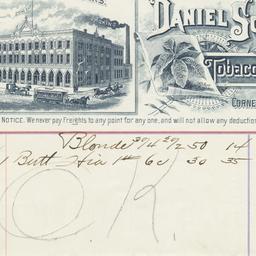 DANIEL S
Tobacco
CORNE
NOTICE. We never pay Freights to any point for any one, and will not allow any deduction
Blonde 30/4 30/12 50 14
1 Butt Hia 1st 6c 30 35
O K.